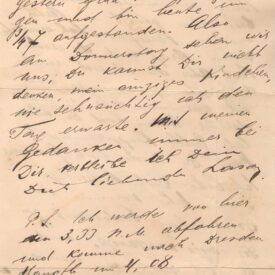 gestern
gen und bin heute um
3/4 7 aufgestanden. Also
am Donnerstag sehen wir
uns, Du kannst Dir nicht
denken mein einziges Kindchen,
wie sehnsüchtig ich den
Tag erwarte. Mit meinen
Gedanken immer bei
Dir verbleibe ich Dein
Dich liebender
P.S. Ich werde von hier
den 3,33 N.M. abfahren
und komme nach Dresden
08